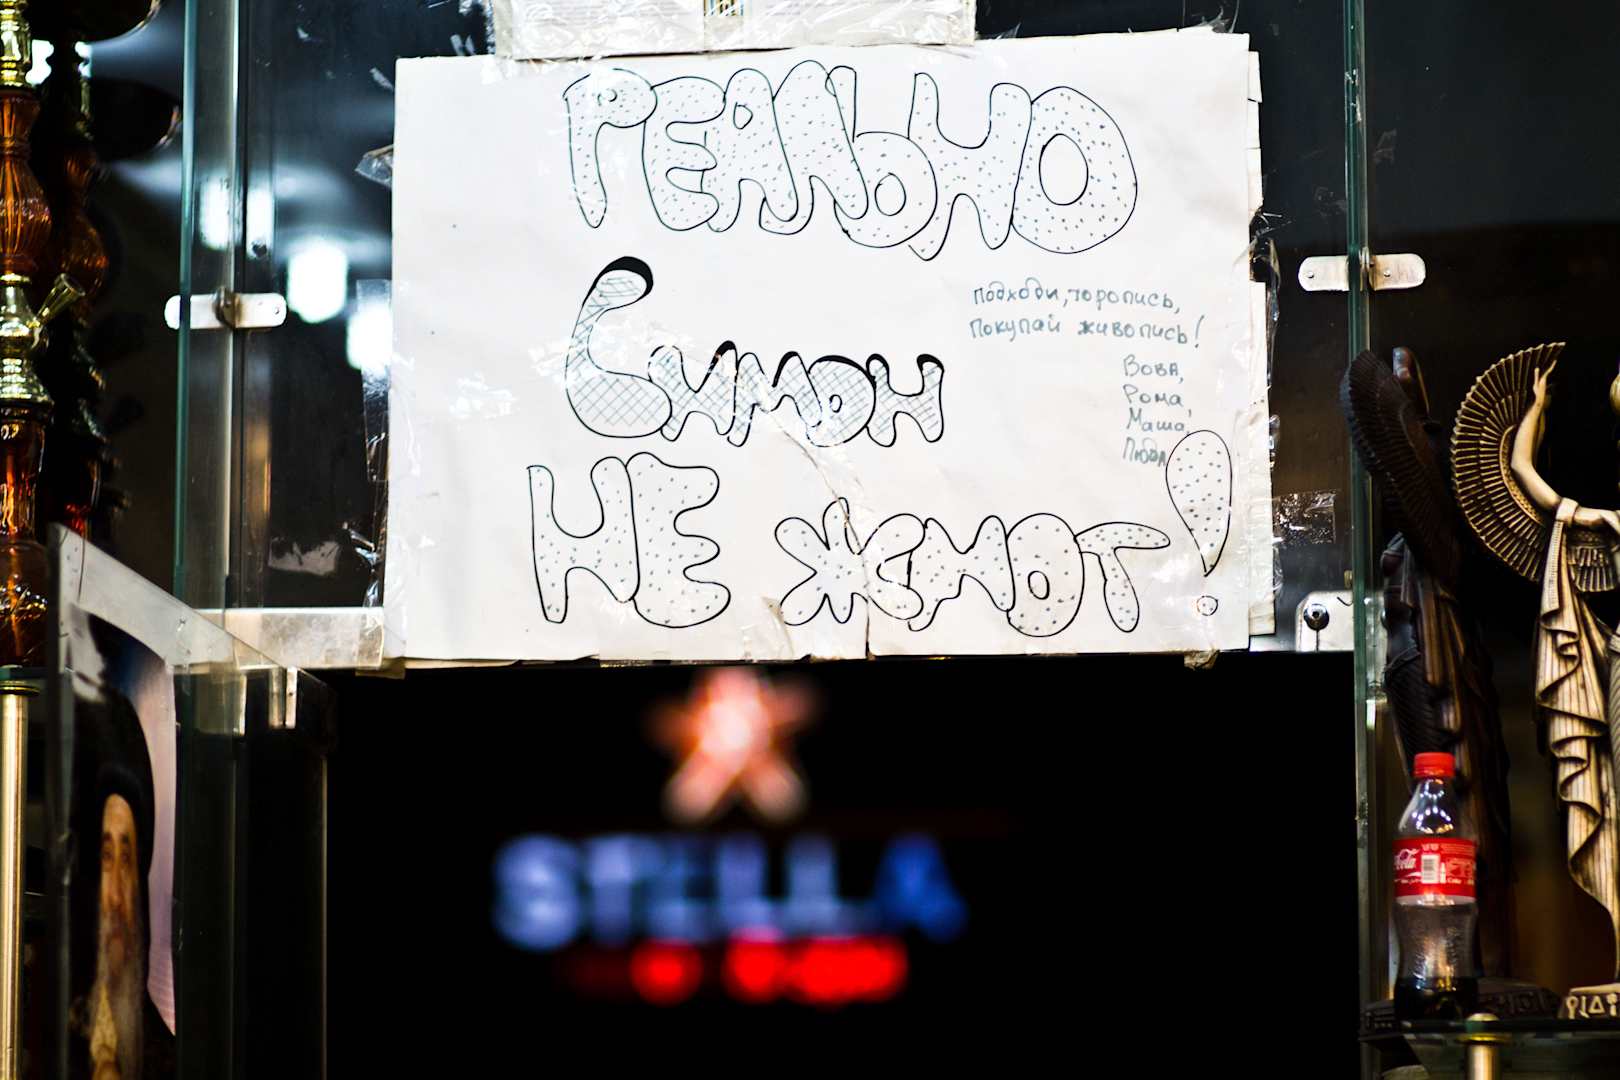 РЕАЛЬНО
Симон
Подходи, торопись,
покупай живопись!
Вова,
Рома,
Маша,
Люда
НЕ ЖМОТ!
STELLA
Cola